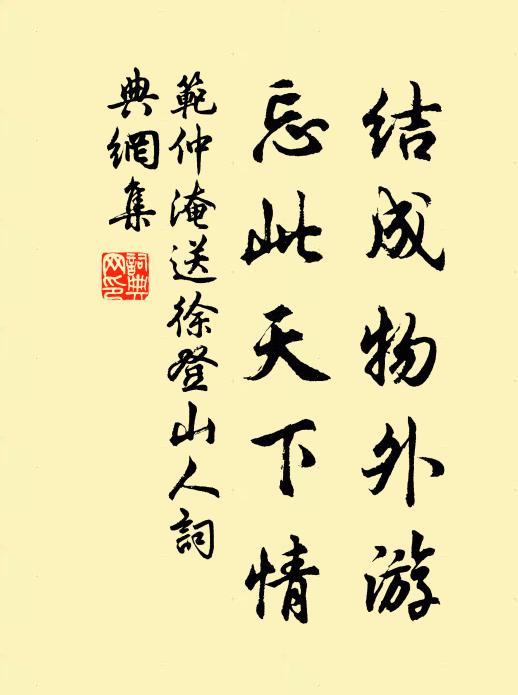 结成物外游
忘此天下情
範仲淹送徐登山人詞
典網集
詞典网印